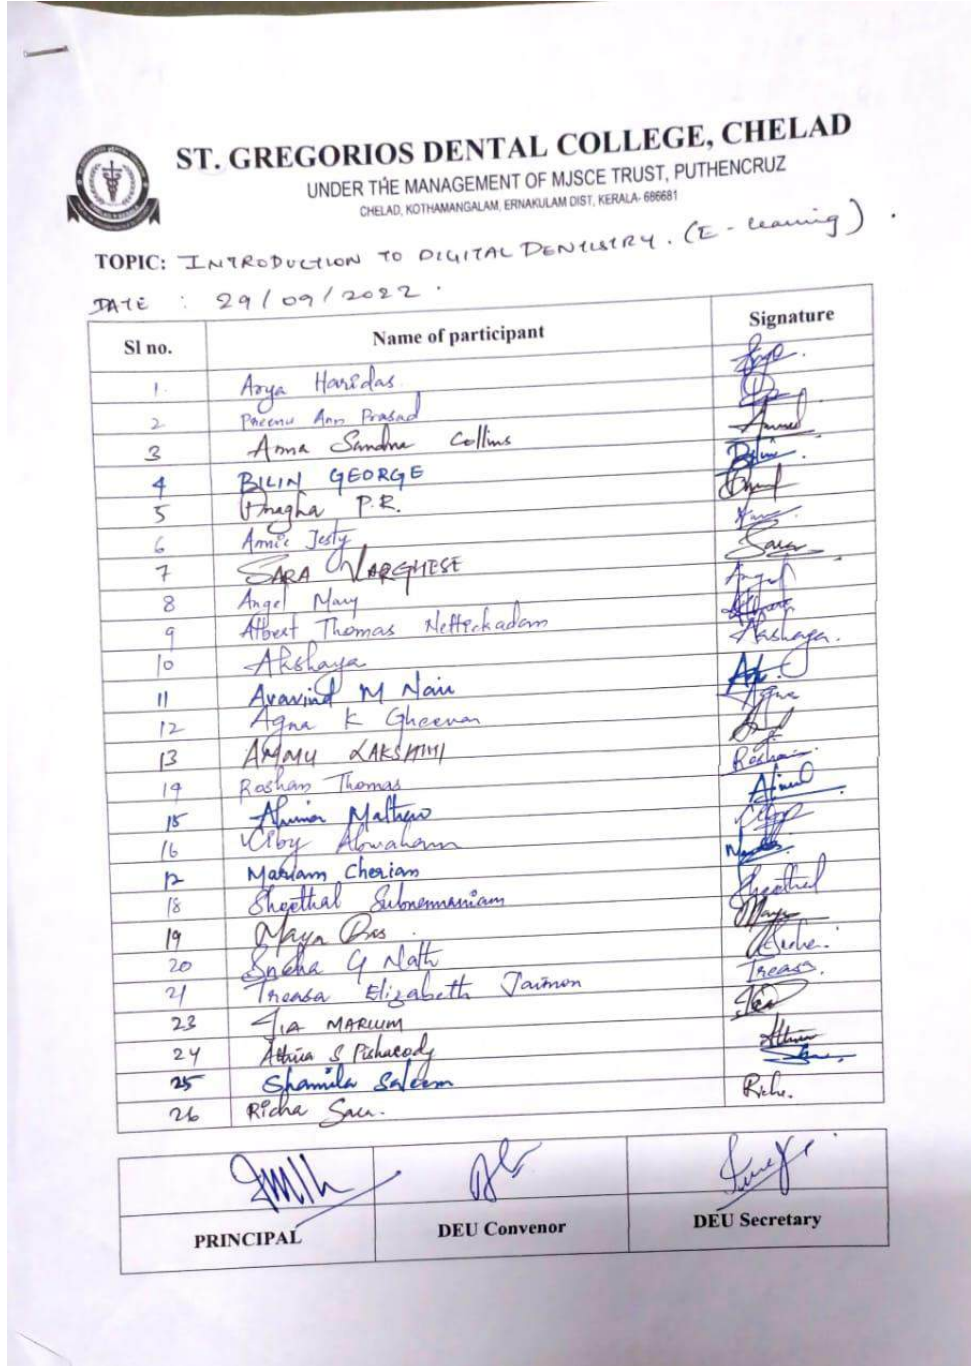 ST. GREGORIOS DENTAL COLLEGE, CHELAD
UNDER THE MANAGEMENT OF MJSCE TRUST, PUTHENCRUZ
CHELAD, KOTHAMANGALAM, ERNAKULAM DIST, KERALA- 686681
TOPIC: INTRODUCTION TO DIGITAL DENTISTRY. (E-learning).
DATE : 29/09/2022.
Sl no. Name of participant Signature
1. Arya Haridas
2 Preenu Ann Prasad
3 Anna Sandra Collins
4 BILIN GEORGE
5 Anagha P.R.
6 Annie Jesty
7 SARA VARGHESE Sara
8 Angel Mary Angel
9 Albert Thomas Netteckadam
10 Akshaya Aashaya.
11 Aravind M Nair
12 Agna K Gheevar Agna
13 AMMU LAKSHMI
14 Roshan Thomas Roshan
15 Mathew
16 Ciby Abraham
17 Mariam Cherian
18 Sheethal Subnemaniam Sheethal
19 Maya Das Maya
20 Sneha G Nath Sneha
21 Treasa Elizabeth Jaimon Treasa.
23 JIA MARIUM Jia
24 Athira S Pisharody Athira
25 Shamila Saleem
26 Richa Richa.
PRINCIPAL DEU Convenor DEU Secretary